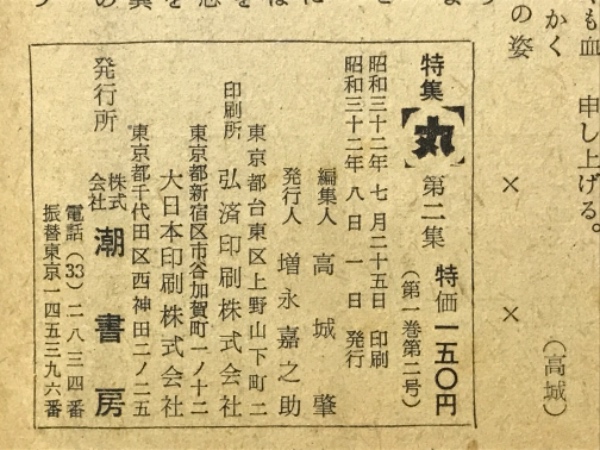 も血
申し上げる。
かく
の姿
×
×
(高城)
特集【丸】第二集 特価一五〇円
(第一巻第二号)
昭和三十二年 七月二十五日 印刷
昭和三十二年 八月 一日 発行
編集人 高城 肇
発行人 増永嘉之助
東京都台東区上野山下町二
印刷所 弘済印刷株式会社
東京都新宿区市谷加賀町一ノ十二
大日本印刷株式会社
東京都千代田区西神田二ノ二五
発行所 株式会社 潮書房
電話(33)二八三四番
振替東京一四五三九六番